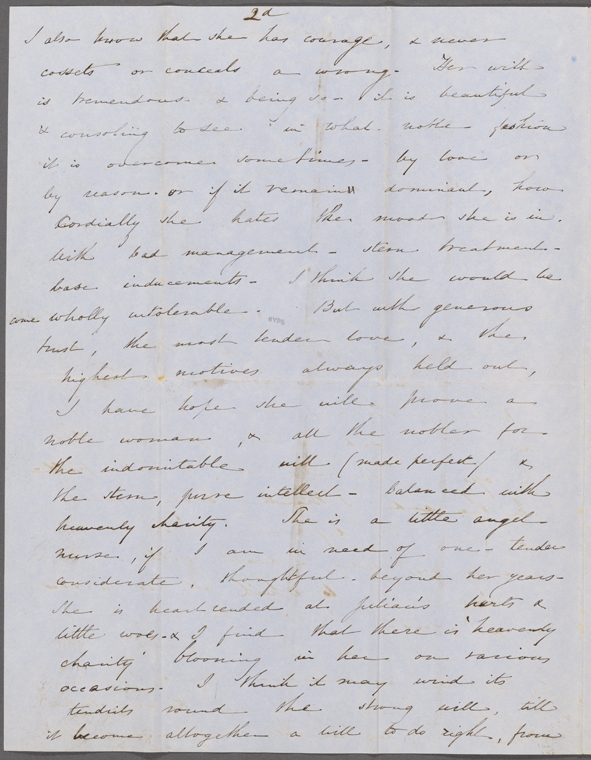 2d
I also know that she has courage, & never
cossets or conceals a wrong. Her will
is tremendous - & being so - it is beautiful
& consoling to see in what noble fashion
it is overcome sometimes - by love or
by reason. or if it remain dominant, how
cordially she hates the mood she is in.
With bad management - stern treatment -
base inducements - I think she would be
come wholly intolerable. But with generous
trust, the most tender love, & the
highest motives always held out,
I have hope she will prove a
noble woman, & all the nobler for
the indomitable will (made perfect) &
the stern, pure intellect - balanced with
heavenly charity. She is a little angel
nurse, if I am in need of one - tender
considerate, thoughtful - beyond her years -
She is heartrended at Julian's hurts &
little woes - & I find that there is "heavenly
charity" blooming in her on various
occasions. I think it may wind its
tendrils round the strong will, till
it become altogether a will to do right, from